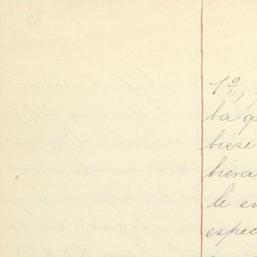 1º,
ba q
biese
biera
le en
espec